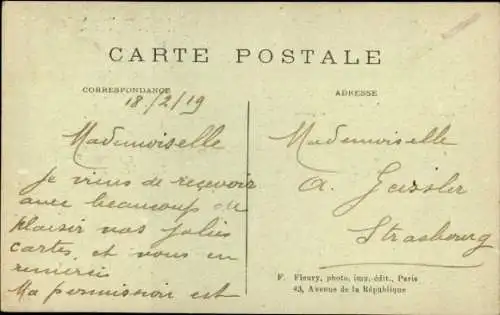 CARTE POSTALE
CORRESPONDANCE
18/2/19
Mademoiselle
Je viens de recevoir
avec beaucoup de
plaisir vos jolies
cartes et vous en
remercie
Ma permission est
ADRESSE
Mademoiselle
A. Geissler
Strasbourg
F. Fleury, photo, imp.-édit., Paris
43, Avenue de la République